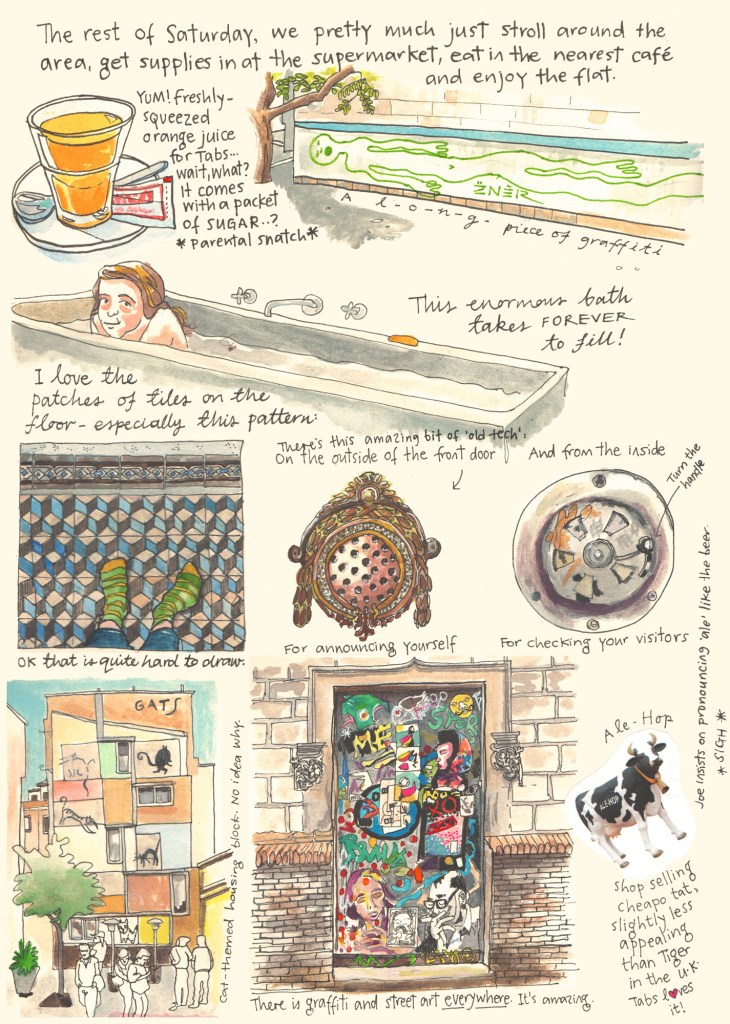 The rest of Saturday, we pretty much just stroll around the
area, get supplies in at the supermarket, eat in the nearest café
and enjoy the flat.
YUM! freshly-
squeezed
orange juice
for Tabs...
wait, what?
It comes
with a packet
of SUGAR..?
*Parental snatch*
ZNER
A l-o-n-g- piece of graffiti
This enormous bath
takes FOREVER
to fill!
I love the
patches of tiles on the
floor - especially this pattern:
OK that is quite hard to draw.
There's this amazing bit of 'old tech':
On the outside of the front door
For announcing yourself
And from the inside
Turn the
handle
For checking your visitors
GATS
Cat-themed housing block. No idea why.
There is graffiti and street art everywhere. It's amazing.
Ale-Hop
ALE-HOP
Shop selling
cheapo tat,
slightly less
appealing
than Tiger
in the U.K.
Tabs l♥ves
it!
Joe insists on pronouncing 'ale' like the beer.
*SIGH*